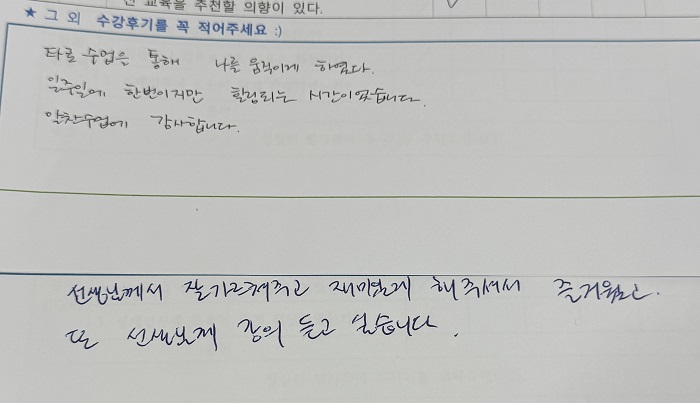 교육을 추천할 의향이 있다.
★ 그 외 수강후기를 꼭 적어주세요 :)
타로 수업은 통해 나를 움직이게 하였다.
일주일에 한번이지만 힐링되는 시간이었습니다.
알찬수업에 감사합니다.
선생님께서 잘가르쳐주고 재미있게 해주셔서 즐거웠고.
또 선생님께 강의 듣고 싶습니다.